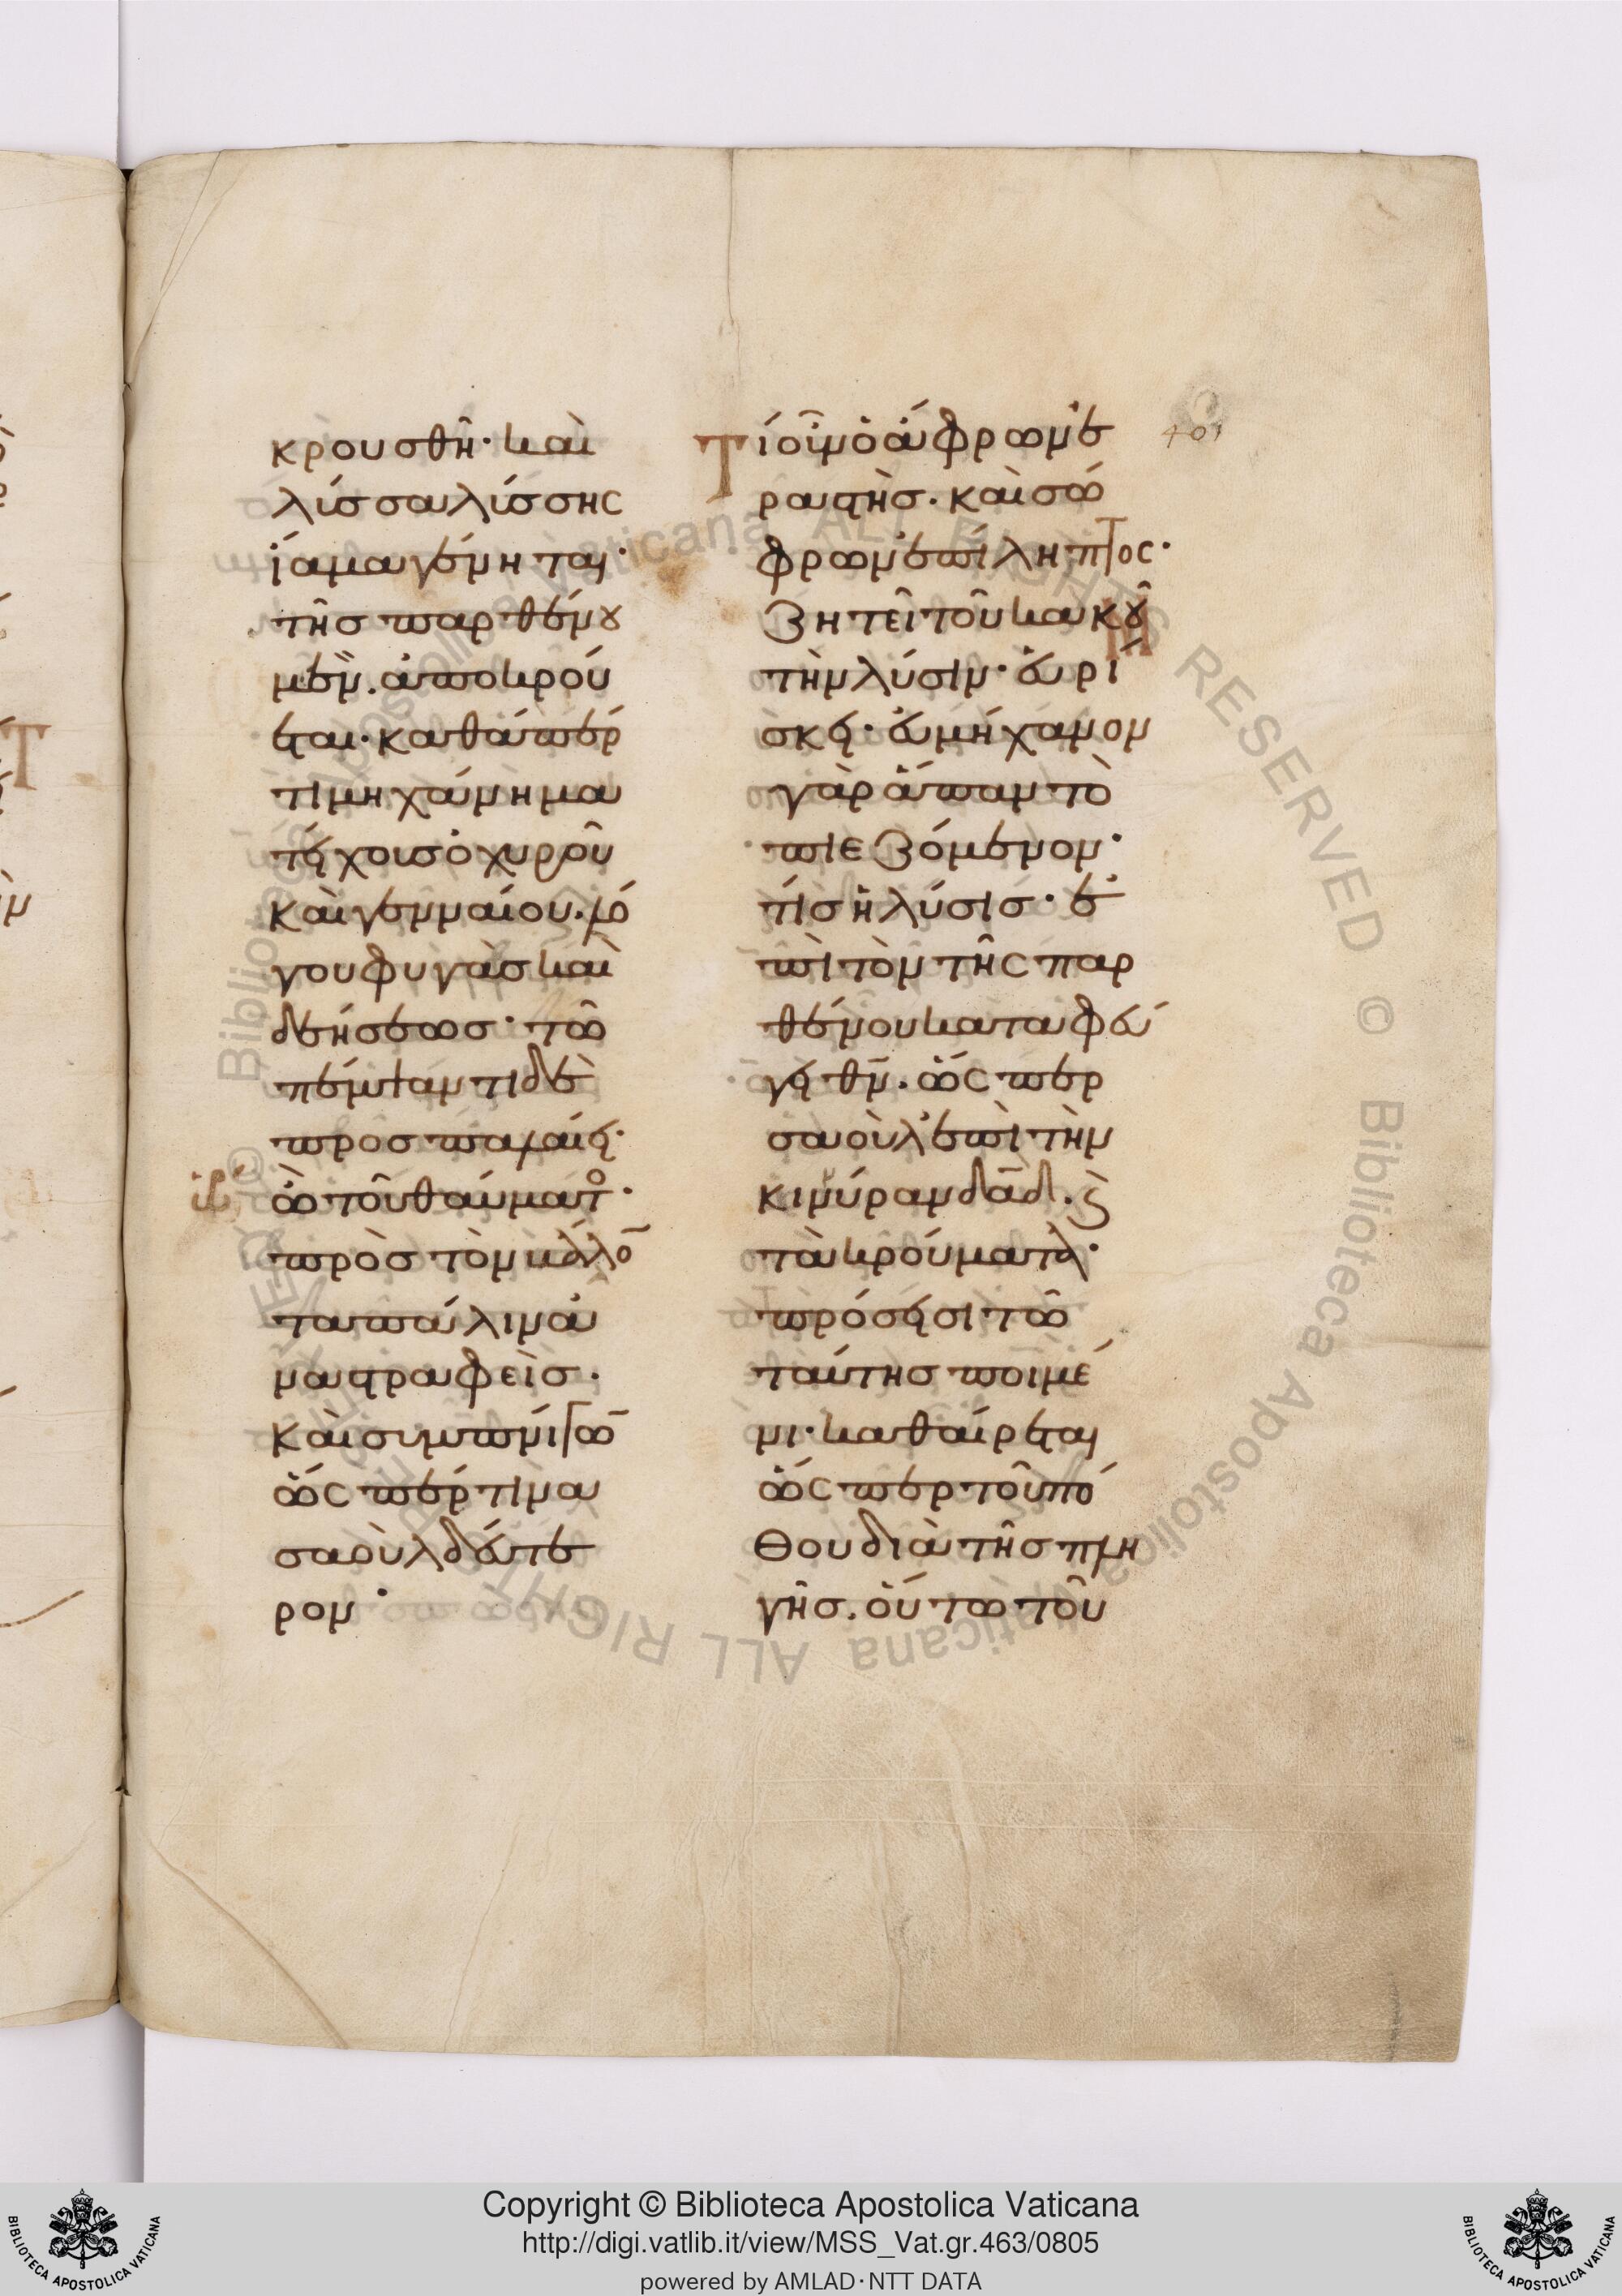 κρουσθῆ· καὶ
λύσσα λύσσης
ἴαμα γένηται·
τῆς παρθένου
μὲν. ἀποκρού
εται· καθάπερ
τι μηχάνημα
τείχους ὀχυροῦ
καὶ γενναίου.
γου φυγὰς καὶ
δεήσεως· τῶ
πέμψαντι δὲ
προσπαλαίει·
ιδ
ὢ τοῦ θαύματος·
πρὸς τὸν καλοῦ
τα πάλιν ἀ
ναστραφεὶς·
καὶ συμπνίγων
ὥσπερ τινα
σαοὺλ δεύτε
ρον·
Τί οὖν ὁ ἄφρων ἐ
ραστὴς· καὶ σώ
φρων ἐπίληπτος·
ζητεῖ τοῦ κακοῦ
τὴν λύσιν· εὑρί
σκει· εὐμήχανον
γὰρ ἅπαν τὸ
πιεζόμενον·
τίς ἡ λύσις· ἐ
πὶ τὸν τῆς παρ
θένου καταφεύ
γει θν. ὥσπερ
σαοὺλ ἐπὶ τὴν
κινύραν δαδ. καὶ
τὰ κρούματα·
πρόσεισι τῶ
ταύτης ποιμέ
νι· καθαίρεται
ὥσπερ τοῦ πό
θου διὰ τῆς πλη
γῆς. οὕτω τοῦ
401
Copyright © Biblioteca Apostolica Vaticana
http://digi.vatlib.it/view/MSS_Vat.gr.463/0805
powered by AMLAD·NTT DATA
BIBLIOTECA APOSTOLICA VATICANA
BIBLIOTECA APOSTOLICA VATICANA
© Biblioteca Apostolica Vaticana ALL RIGHTS RESERVED © Biblioteca Apostolica Vaticana ALL RIGHTS RESERVED